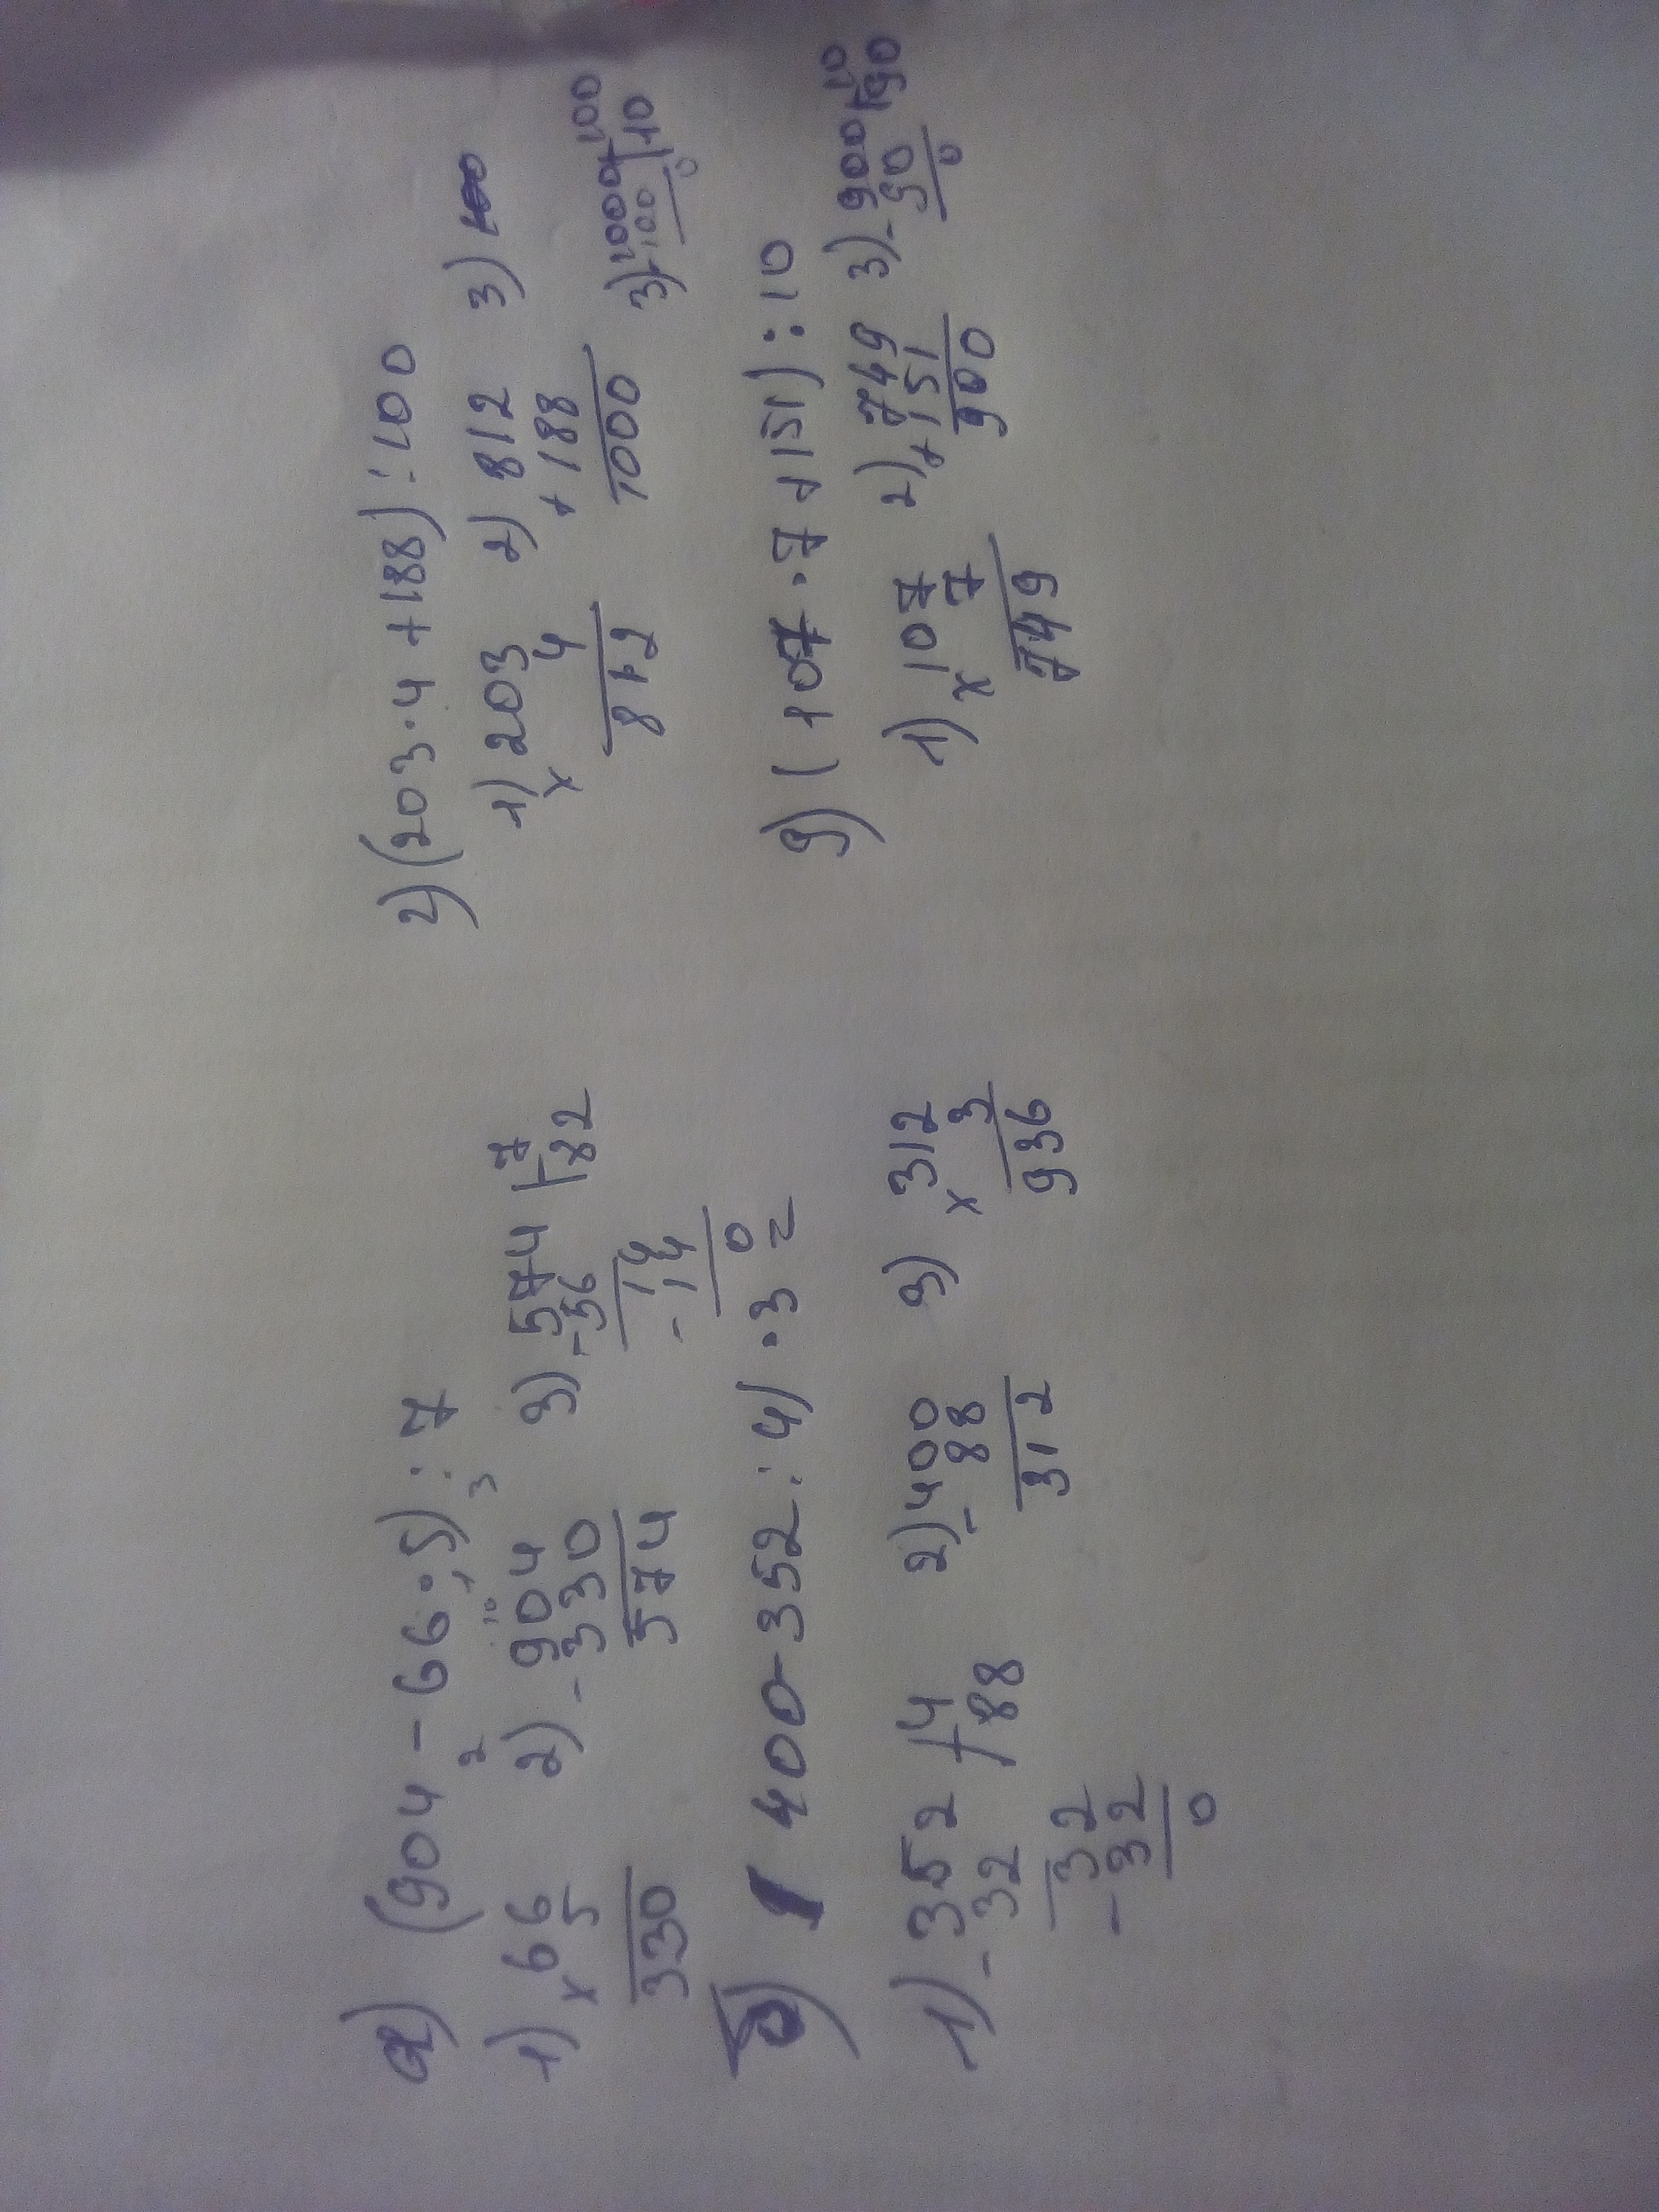 а) (904 - 66 · 5) : 7
1) 66
× 5
330
2) - 904
330
574
3) 574 | 7
-56 | 82
14
- 14
0
б) 400 - 352 : 4) · 3 =
1) - 352 | 4
32 | 88
32
- 32
0
2) - 400
88
312
3) × 312
3
936
г) (203 · 4 + 188) : 100
1) 203
× 4
812
2) 812
+ 188
1000
3)
3) - 1000 | 100
100 | 10
0
д) (107 · 7 + 151) : 10
1) × 107
7
749
2) + 749
151
900
3) - 900 | 10
90 | 90
0